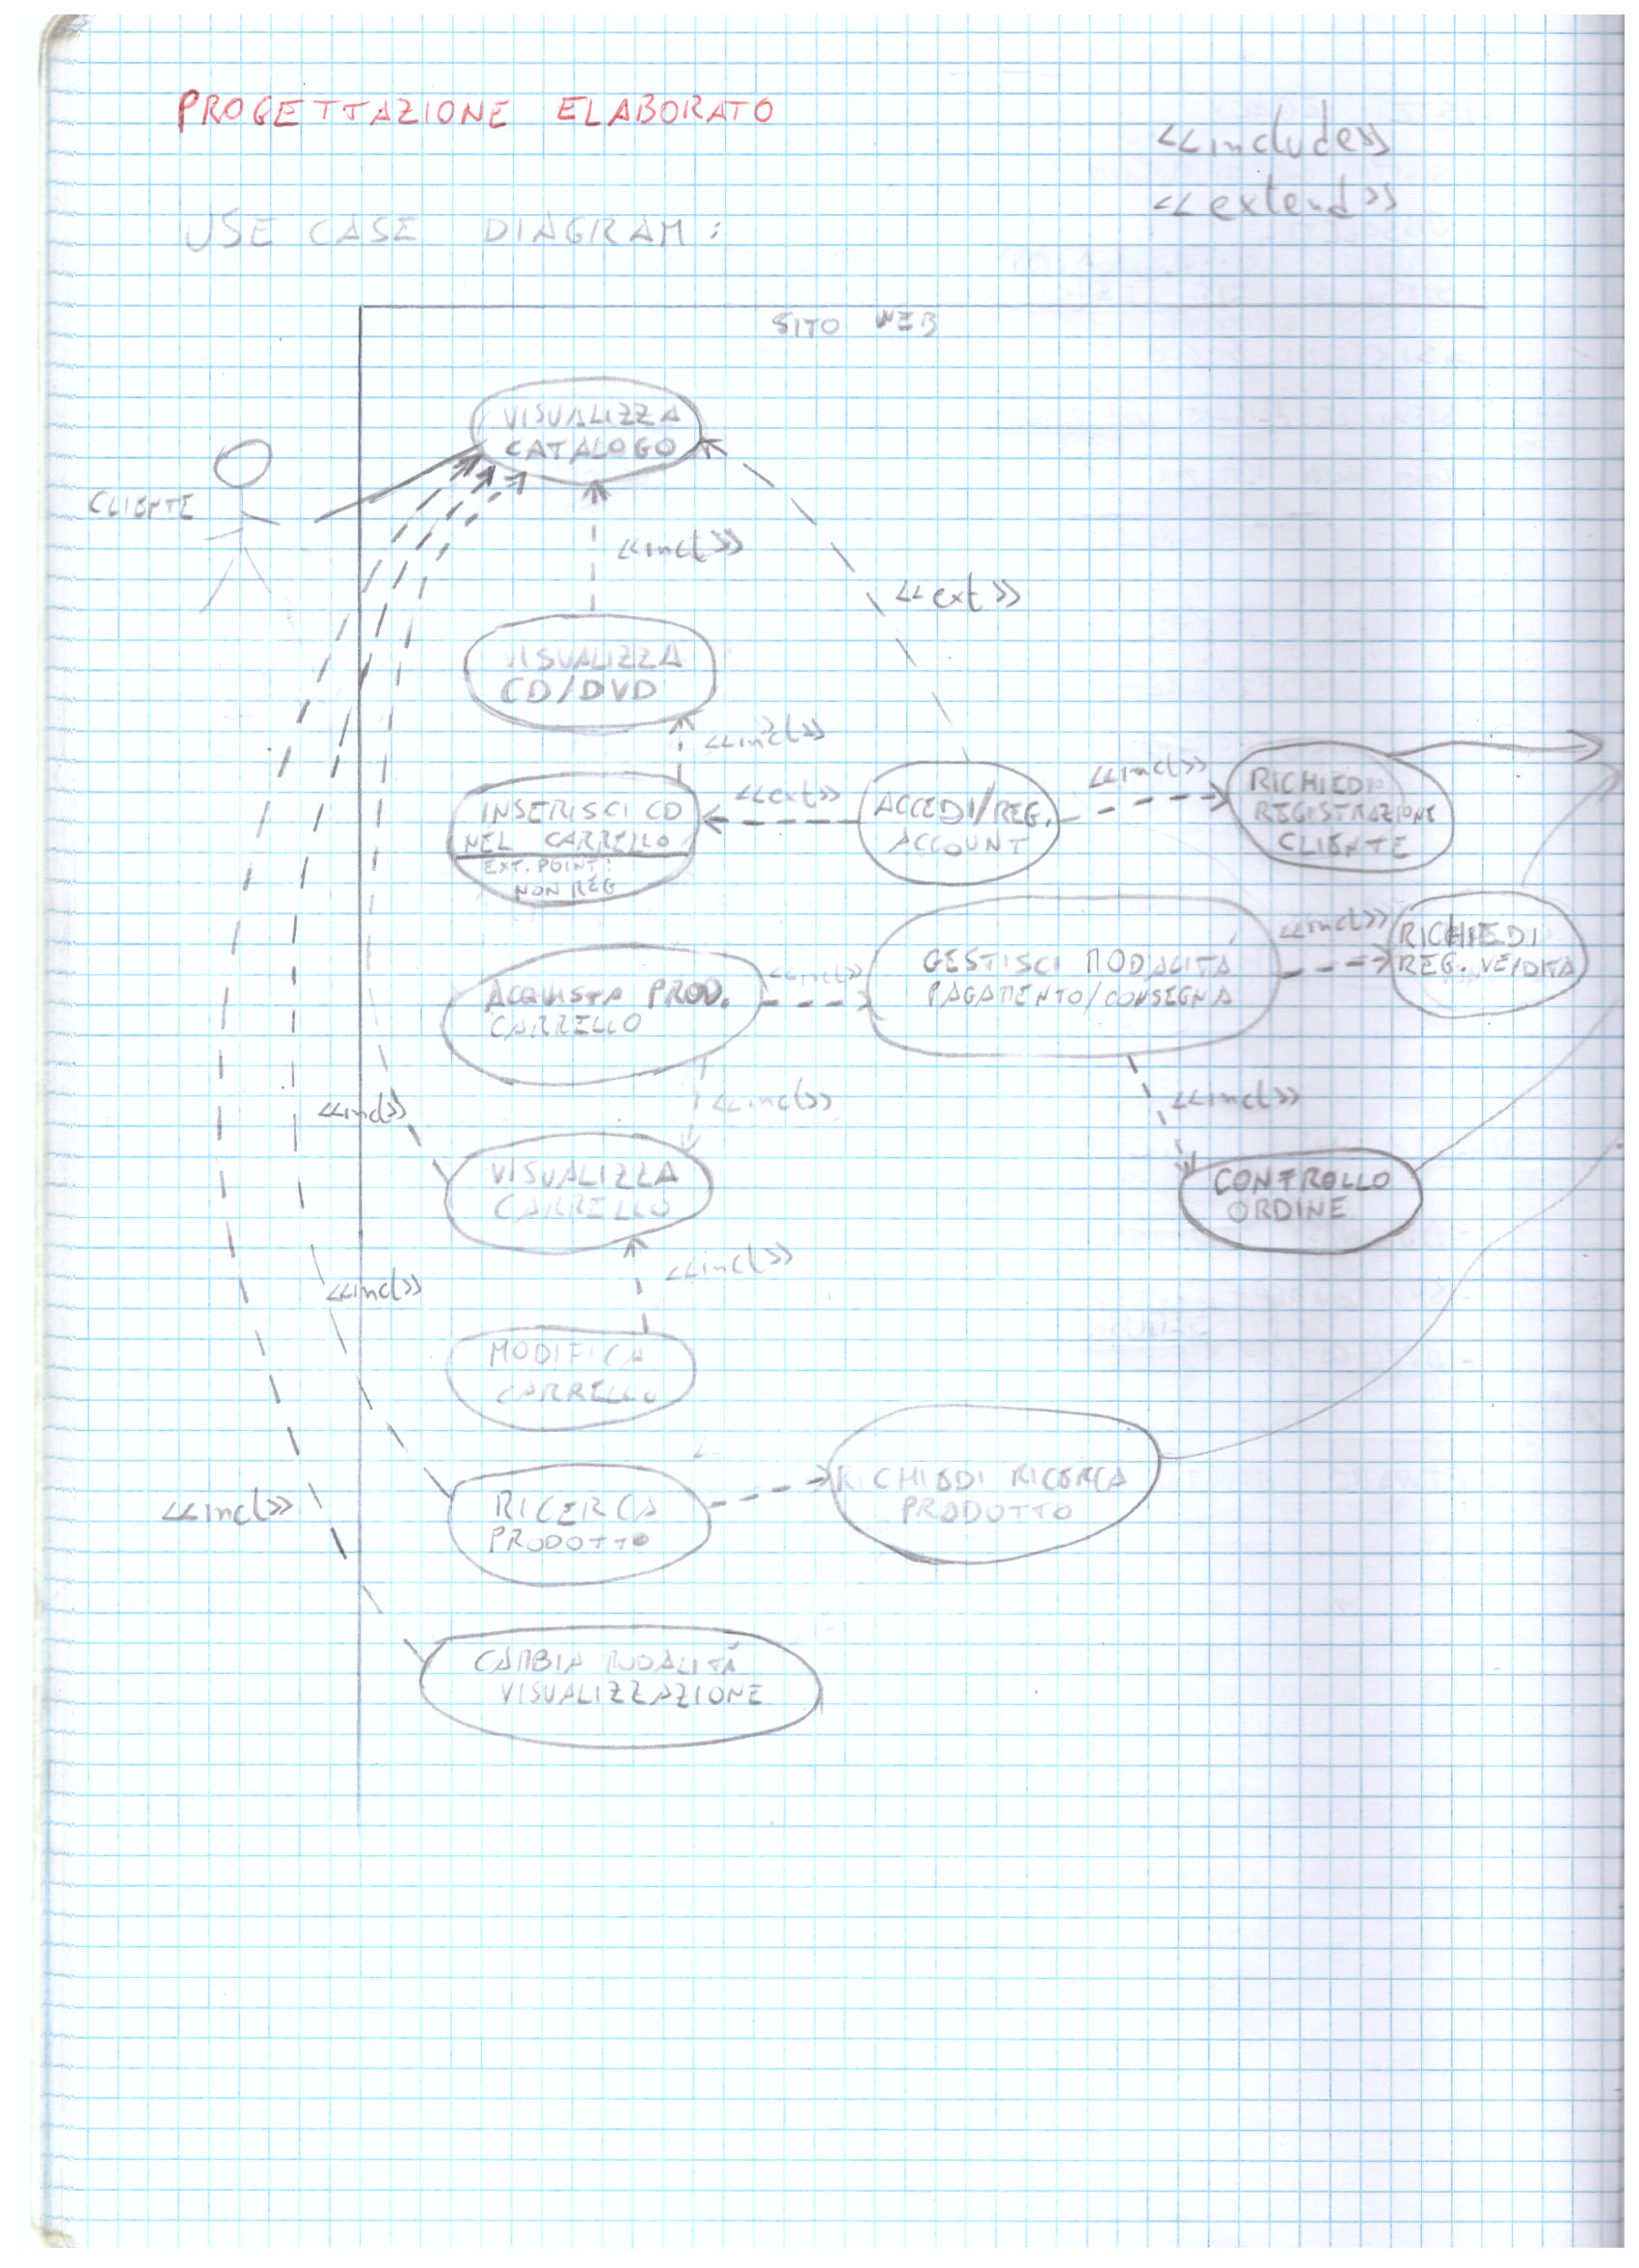 PROGETTAZIONE ELABORATO
<<include>>
<<extend>>
USE CASE DIAGRAM:
SITO WEB
VISUALIZZA
CATALOGO
CLIENTE
<<incl>>
<<ext>>
VISUALIZZA
CD/DVD
<<incl>>
INSERISCI CD
NEL CARRELLO
EXT. POINT:
NON REG
<<ext>>
ACCEDI/REG.
ACCOUNT
<<incl>>
RICHIEDI
REGISTRAZIONE
CLIENTE
ACQUISTA PROD.
CARRELLO
<<incl>>
GESTISCI MODALITÁ
PAGAMENTO/CONSEGNA
<<incl>>
RICHIEDI
REG. VENDITA
<<incl>>
<<incl>>
<<incl>>
VISUALIZZA
CARRELLO
CONTROLLO
ORDINE
<<incl>>
<<incl>>
MODIFICA
CARRELLO
<<incl>>
RICERCA
PRODOTTO
RICHIEDI RICERCA
PRODOTTO
CAMBIA MODALITÁ
VISUALIZZAZIONE